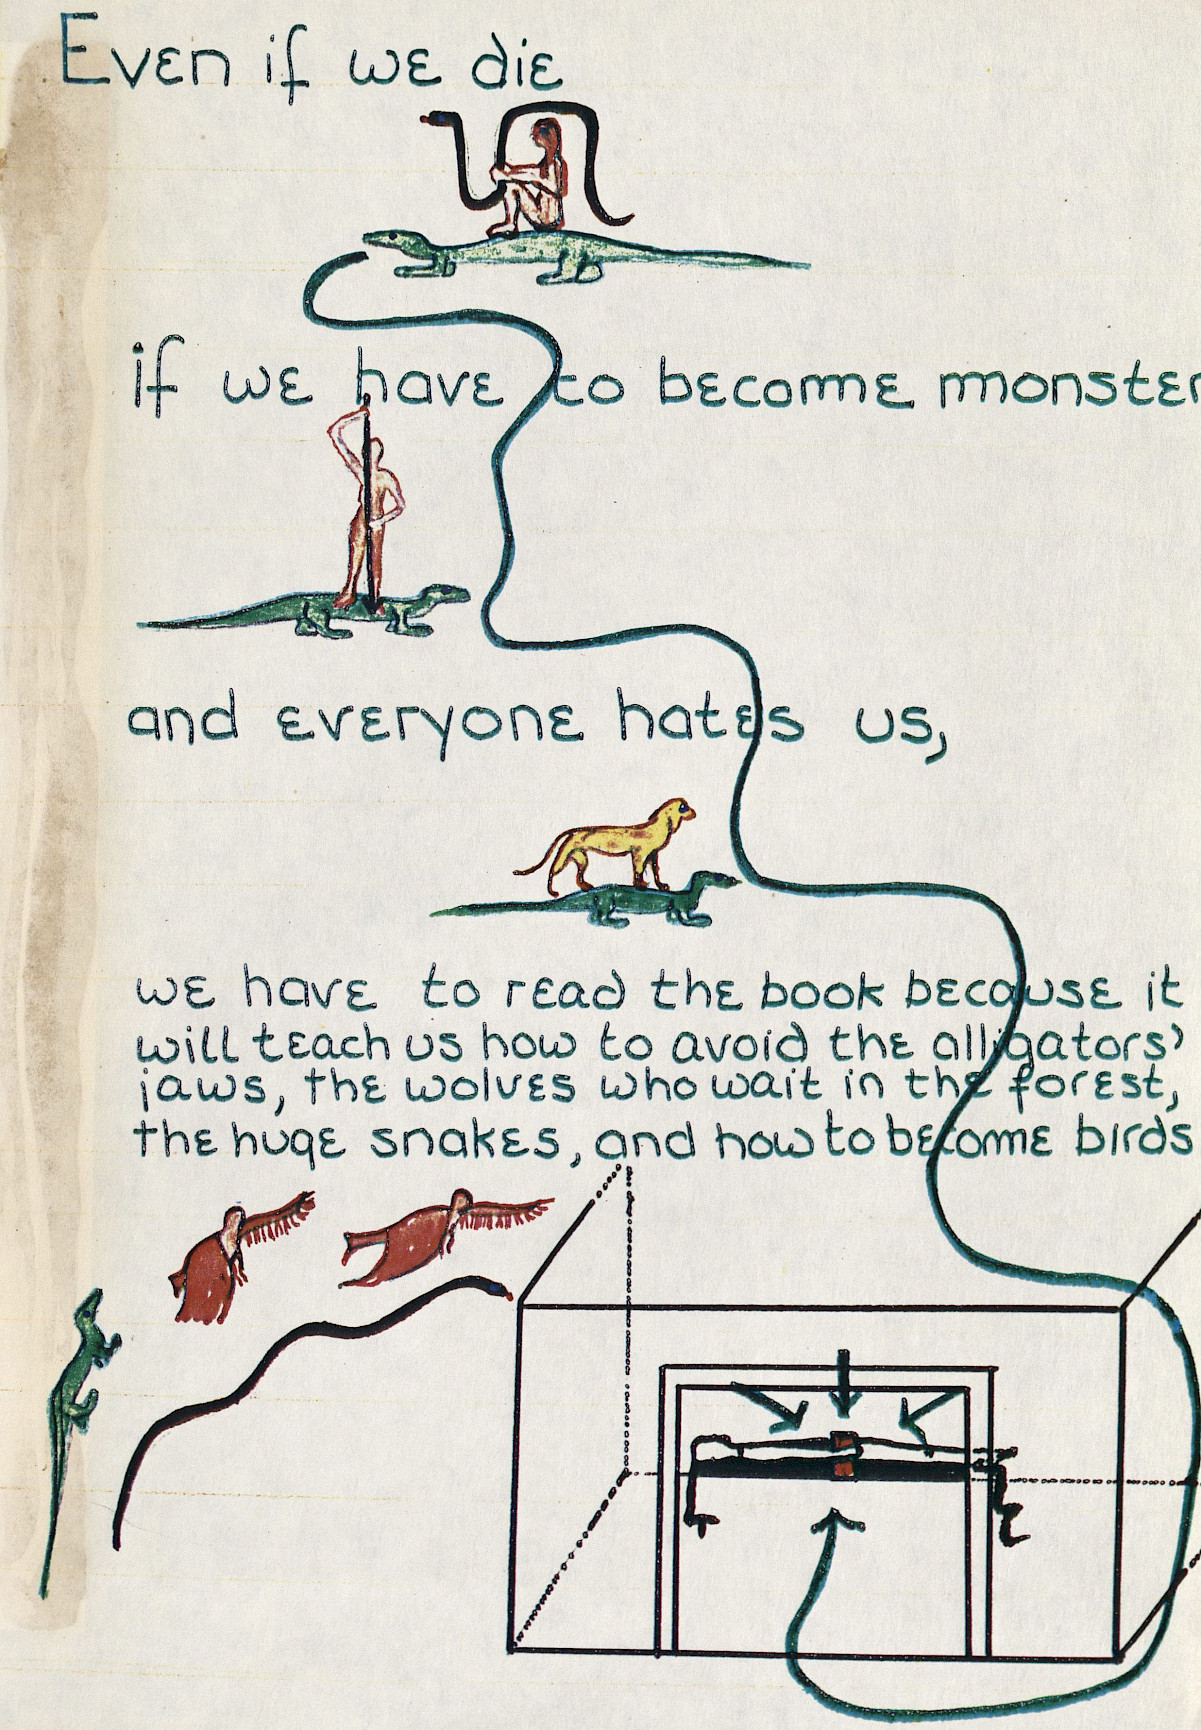 Even if we die
if we have to become monster
and everyone hates us,
we have to read the book because it
will teach us how to avoid the alligators'
jaws, the wolves who wait in the forest,
the huge snakes, and how to become birds